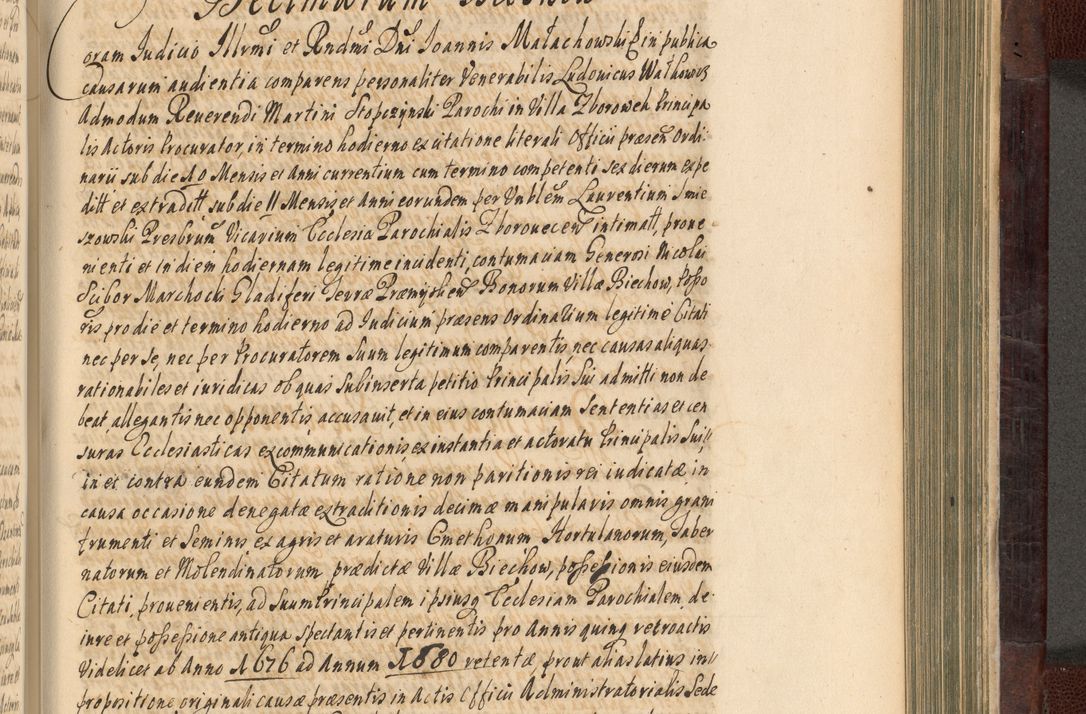 Decimarum
oram Judicio Illrmi et Rndmi Dni Joannis Małachowski in publica
causarum audientia comparens personaliter Venerabilis Ludovicus Wałkowicz
Admodum Reverendi Martini Stopczynski Parochi in Villa Zborowek Principa
lis Actoris Procurator, in termino hodierno ex citatione literali Officii præsen Ordi-
narii sub die 10 Mensis et Anni currentium cum termino competenti sex dierum expe
ditt et extraditt sub die 11 Mensis et Anni eorundem per Vnblem Laurentium Smie
szowski Presbrum Vicarium Ecclesiæ Parochialis Zborovecen intimatt, prove
nienti et in diem hodiernam legitime incidenti, contumaciam Generosi Nicolai
Scibor Marchocki Gladiferi Terræ Præmyslien Bonorum Villæ Biechow, Posso
ris pro die et termino hodierno ad Judicium præsens Ordinarium legitime Citati
nec per se, nec per Procuratorem suum legitimum comparentis, nec causas aliquas
rationabiles et iuridicas ob quas subinserta petitio Principalis sui admitti non de
beat, allegantis nec opponentis accusauit, et in eius contumaciam Sententias et cen
suras Ecclesiasticas excommunicationis, ex instantia et actoratu Principalis sui,
in et contra eundem Citatum ratione non paritionis rei iudicatæ in
causa occasione denegatæ extraditionis decimæ manipularis omnis grani
frumenti et Seminis ex agris et araturis Cmethonum Hortulanorum, Taber
natorum et Molendinatorum prædictæ Villæ Biechow, possessionis eiusdem
Citati, prouenientis, ad suum Principalem ipsiusq Ecclesiam Parochialem, de
iure et possessione antiqua spectantis et pertinentis pro Annis quinq retroactis
Videlicet ab Anno 1676 ad Annum 1680 retentæ, prout alias latius in
propositione originali causæ præsentis in Actis Officii Administratorialis Sede